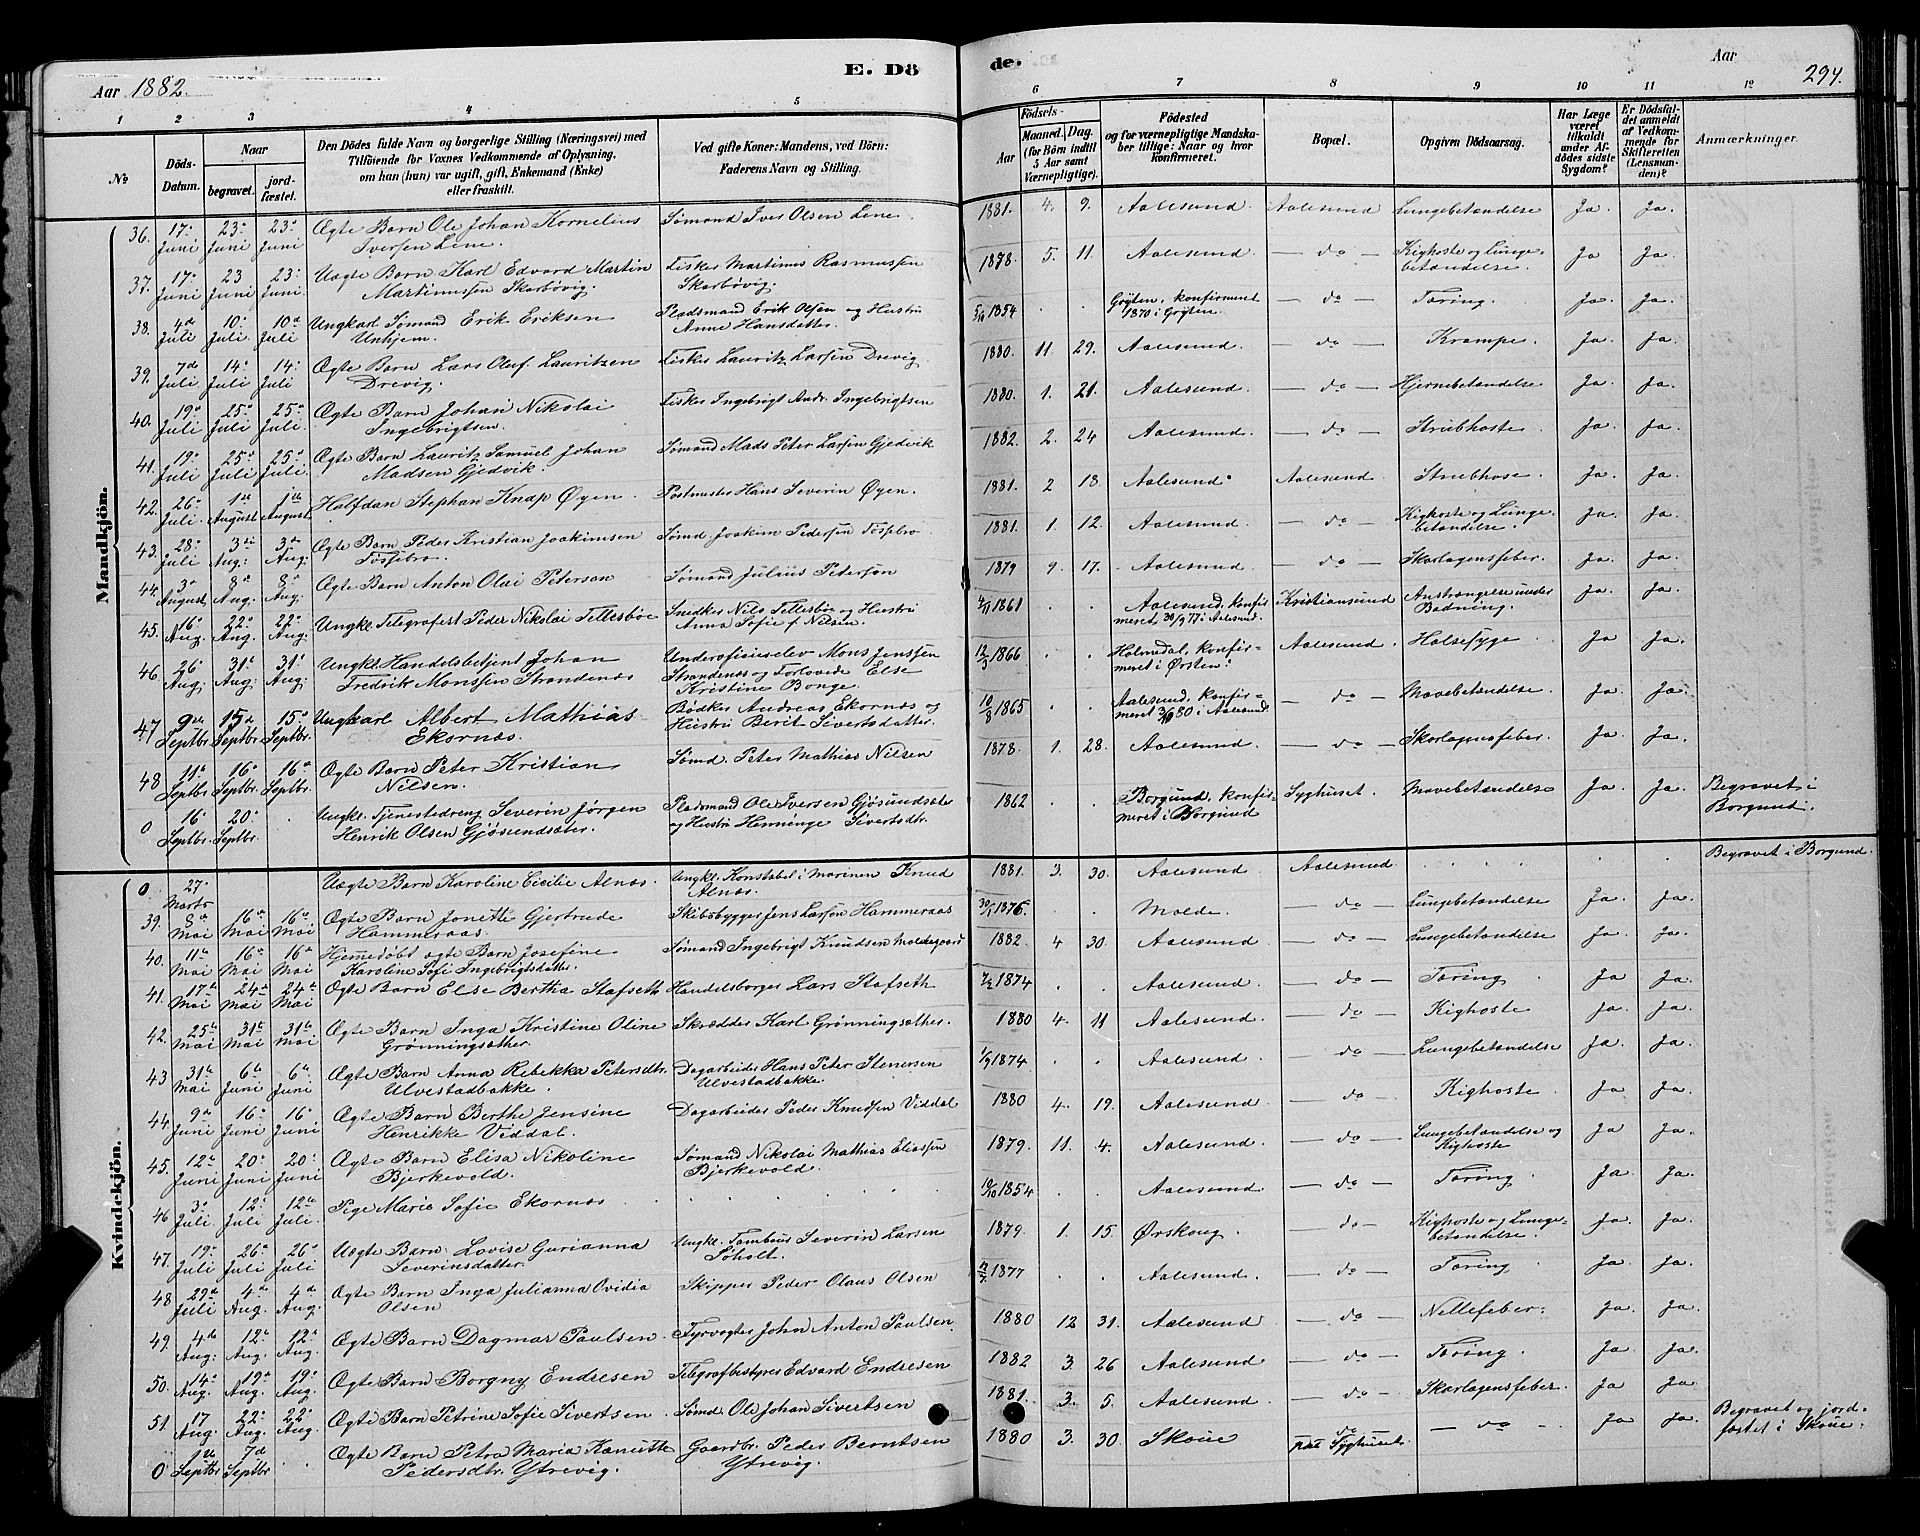 Aar 1882.
E. Dö
de.
Aar
294.
1 2 3 4 5 6 7 8 9 10 11 12
No
Döds-Datum.
Naar
begravet.
jord-fæstet.
Den Dödes fulde Navn og borgerlige Stilling (Næringsvei) med
Tilföiende for Voxnes Vedkommende af Oplysning,
om han (hun) var ugift, gift, Enkemand (Enke)
eller fraskilt.
Ved gifte Koner: Mandens, ved Börn:
Faderens Navn og Stilling.
Födsels-
Aar
Maaned. Dag.
(for Börn indtil
5 Aar samt
Værnepligtige).
Födested
og for værnepligtige Mandska-
ber tillige: Naar og hvor
konfirmeret.
Bopæl.
Opgiven Dödsaarsag.
Har Læge
været
tilkaldt
under Af-
dödes sidste
Sygdom?
Er Dödsfal-
det anmeldt
af Vedkom-
mende for
Skifteretten
(Lensman-
den)?
Anmærkninger.
Mandkjön.
36. 17de Juni 23de Juni 23de Juni Ægte Barn Ole Johan Kornelius Iversen Lene. Sømand Iver Olsen Lene. 1881. 4. 9. Aalesund. Aalesund Lungebetændelse Ja. Ja.
37. 17de Juni 23 Juni 23. Juni Uægte Barn Karl Edvard Martin Martinussen Skarbøvig. Fisker Martinus Rasmussen Skarbøvig. 1878. 5. 11. Aalesund — do — Kighoste og Lungebetændelse. Ja Ja.
38. 4de Juli 10. Juli. 10de Juli Ungkarl Sømand Erik Eriksen Unhjem. Pladsmand Erik Olsen og Hustru Anne Hansdatter. 5/10 1854 . . Grytten, konfirmeret 1870 i Grytten. — do — Tæring. Ja. Ja.
39. 7de Juli 14. Juli 14. Juli Ægte Barn Lars Oluf Lauritzen Drevig. Fisker Lauritz Larsen Drevig. 1880. 11. 29. Aalesund. — do — Krampe. Ja. Ja.
40. 19de Juli 25de Juli 25de Juli. Ægte Barn Johan Nikolai Ingebrigtsen. Fisker Ingebrigt Andr. Ingebrigtsen 1880. 1. 21. Aalesund — do — Hjernebetændelse Ja. Ja.
41. 19de Juli 25de Juli 25de Juli. Ægte Barn Lauritz Samuel Johan Madsen Gjedvik. Sømand Mads Peter Larsen Gjedvik 1882. 2. 24 Aalesund. — do — Strubhoste. Ja. Ja.
42. 26de Juli. 1ste August 1ste August Halfdan Stephan Knap Øyen. Postmester Hans Severin Øyen. 1881. 2 18 Aalesund. Aalesund. Strubhose. Ja. Ja.
43. 28de Juli 3die Aug: 3die Aug. Ægte Barn Peder Kristian Joakimsen Tøssebro. Sømd. Joakim Pedersen Tøssebro. 1881. 1. 12. Aalesund. — do — Kighoste og Lungebetændelse. Ja. Ja.
44. 3die August 8de Aug. 8de Aug: Ægte Barn Anton Olai Peterson Sømand Julius Petersøn 1879 9. 17. Aalesund. — do — Skarlagensfeber. Ja. Ja.
45. 16de Aug. 22de Aug. 22de Aug. Ungkl. Telegrafist Peder Nikolai Tellesbøe Snedker Nils Tellesbøe og Hustru Anna Sofie f. Nilsen. 1861 . . Aalesund, konfirmeret 30/9 77 i Aalesund. Kristiansund Anstrængelse under Badning. Ja. Ja.
46 26de Aug. 31te Aug. 31te Aug. Ungkl. Handelsbetjent Johan Fredrik Monssen Strandenæs Underofficierselev Mons Jenssen Strandenæs og Forlovede Else Kristine Bonge. 12/3 1866 . . Holmedal, konfirmeret i Ørsten. Aalesund. Halsesyge Ja Ja.
47 9de Septbr. 15de Septbr. 15de Septbr. Ungkarl Albert Mathias Ekornæs. Bødker Andreas Ekornæs og Hustru Berit Sivertsdatter. 10/8 1865 . . Aalesund, konfirmeret 3/10 80 i Aalesund. — do — Mavebetændelse. Ja. Ja.
48 11te Septbr. 16de Septbr. 16de Septbr. Ægte Barn Peter Kristian Nilsen. Sømd. Peter Mathias Nilsen 1878. 1. 28. Aalesund — do — Skarlagensfeber. Ja. Ja.
0 16 Septbr. 20. Septbr. . Ungkl. Tjenestedreng Severin Jørgen Henrik Olsen Gjøsundsæter. Pladsmand Ole Iversen Gjøsundsæter og Hustru Henninge Sivertsdtr. 1862 . . Borgund, konfirmeret i Borgund Syghuset. Mavebetændelse Ja. Ja. Begravet i Borgund.
Kvindekjön.
0. 27. Marts Uægte Barn Karoline Cecilie Alnæs. Ungkl. Konstabel i Marinen Knud Alnæs. 1881. 3. 30. Aalesund Aalesund . . . . . . Begravet i Borgund.
39. 8de Mai 16de Mai 16de Mai Ægte Barn Jonette Gjertrude Hammeraas. Skibsbygger Jens Larsen Hammeraas 30/1 1876. . . Molde. — do — Lungebetændelse Ja. Ja.
40. 11te Mai 16de Mai 16de Mai Hjemedøbt ægte Barn Josefine Karoline Sofie Ingebrigtsdatter. Sømand Ingebrigt Knudsen Moldegaard 1882 4 30. Aalesund — do — Lungebetændelse Ja. Ja.
41. 17de Mai 24de Mai 24de Mai Ægte Barn Else Bertha Stafseth Handelsborger Lars Stafseth 7/2 1874 . . Aalesund. — do — Tæring Ja Ja.
42. 25de Mai 31te Mai 31te Mai Ægte Barn Inga Kristine Oline Grønningsæther. Skrædder Karl Grønningsæther. 1880 4. 11 Aalesund — do — Kighoste Ja. Ja.
43 31te Mai 6te Juni 6te Juni Ægte Barn Anna Rebekka Petersdtr. Ulvestadbakke. Dagarbeider Hans Peter Stenersen Ulvestadbakke. 1/9 1874 . . Aalesund. — do — Lungebetændelse Ja. Ja.
44. 9de Juni 16de Juni 16de Juni Ægte Barn Berthe Jensine Henrikke Viddal. Dagarbeider Peder Knudsen Viddal 1880 4. 19. Aalesund. — do — Kighoste. Ja Ja.
45. 12te Juni 20. Juni 20. Juni Ægte Barn Elisa Nikoline Bjerkevold. Sømand Nikolai Mathias Eliassen Bjerkevold. 1879. 11. 4. Aalesund. — do — Lungebetændelse og Kighoste Ja Ja.
46 3. Juli. 12. Juli. 12te Juli. Pige Marie Sofie Ekornæs . . . . 10/10 1854 . . Aalesund — do — Tæring. Ja. Ja.
47. 19de Juli 26de Juli 26de Juli Uægte Barn. Lovise Gurianna Severinsdatter. Ungkl. Tambour Severin Larsen Søholt. 1879. 1. 15. Ørskoug. — do — Kighoste og Lungebetændelse. Ja. Ja.
48 29de Juli 4de Aug. 4de Aug: Ægte Barn Inga Julianna Ovidia Olsen Skipper Peder Olaus Olsen 1877 . . Aalesund. — do — Tæring Ja. Ja.
49. 4de Aug: 12te Aug. 12te Aug Ægte Barn Dagmar Paulsen. Fyrvogter John Anton Paulsen. 1880 12 31. Aalesund — do — Nellefeber. Ja. Ja.
50. 14de Aug. 19de Aug. 19de Aug. Ægte Barn Borgny Endresen Telegrafbestyrer Edvard Endresen 1882 3. 26 Aalesund — do — Tæring. Ja. Ja.
51. 17 Aug. 22de Aug. 22de Aug. Ægte Barn Petrine Sofie Sivertsen. Sømd. Ole Johan Sivertsen 1881. 3. 5. Aalesund — do — Skarlagensfeber. Ja Ja.
0 1ste Septbr. 7de Septbr . Ægte Barn Petra Maria Kanutte Pedersdtr. Ytrevig. Gaardbr. Peder Berntsen Ytrevig. 1880 3. 30 Skoue do paa Syghuset. — do — Ja Ja. Begravet og jordfæstet i Skoue.